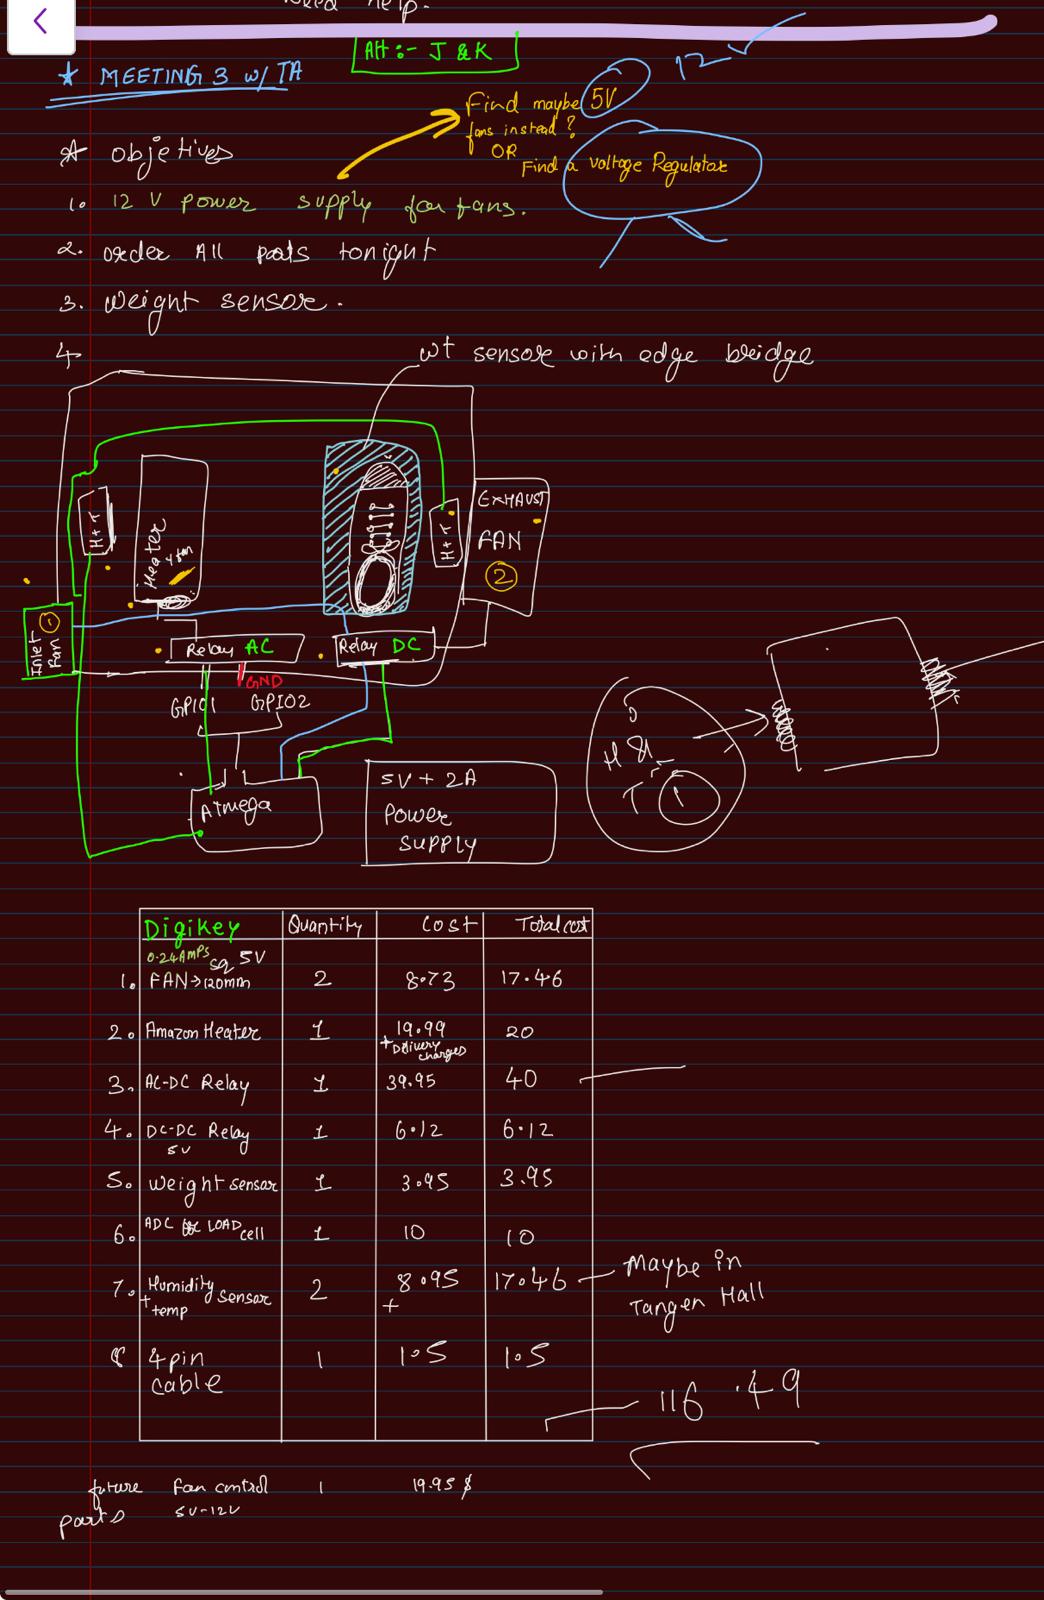 need help.
Att :- J & K
* MEETING 3 w/ TA
12
Find maybe 5V
fans instead?
OR
Find a voltage Regulator
* objetives
1. 12 V power supply for fans.
2. order All parts tonight
3. Weight sensor.
4.
wt sensor with edge bridge
H+T
Heater
H+T
EXHAUST
FAN
2
Inlet
fan
1
Relay AC
Relay DC
GND
GPIO1
GPIO2
ATmega
5V + 2A
Power
SUPPLY
H &
T
1
Digikey Quantity Cost Total cost
0.24AMPS sq 5V
1. FAN→120mm 2 8.73 17.46
2. Amazon Heater 1 19.99 20
+ Delivery
charges
3. AC-DC Relay 1 39.95 40
4. DC-DC Relay 1 6.12 6.12
5V
5. Weight sensor 1 3.95 3.95
6. ADC LOAD cell 1 10 10
7. Humidity sensor 2 8.95 17.46
+ temp +
Maybe in
Tangen Hall
8 4 pin 1 1.5 1.5
cable
116.49
future Fan control 1 19.95 $
parts 5V-12V